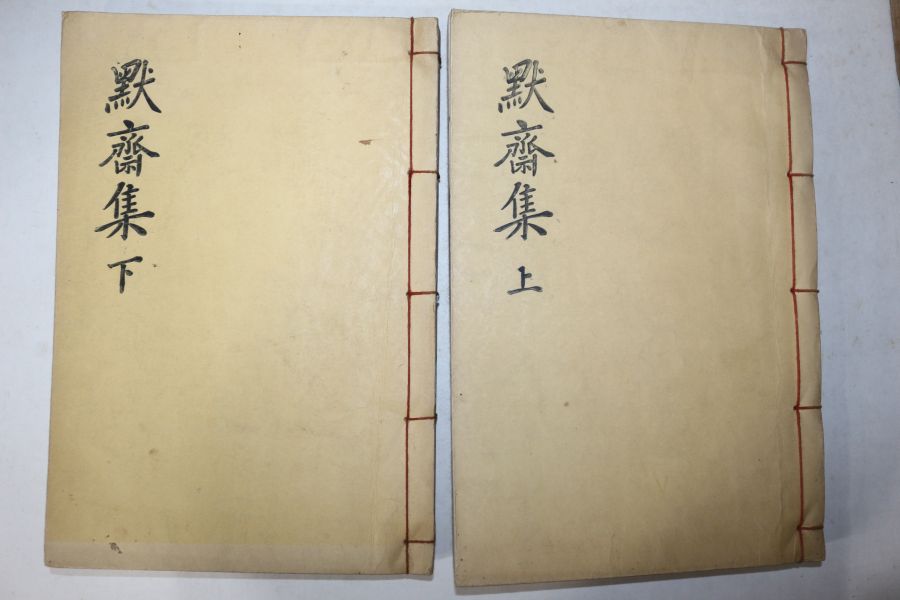 默齋集上
默齋集下